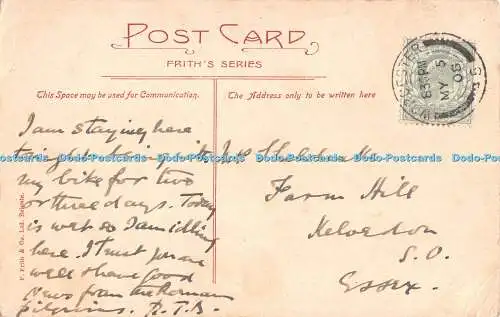 POST CARD
FRITH'S SERIES
This Space may be used for Communication.
The Address only to be written here
I am staying here
my bike for two
or three days. Today
is wet so I am idling
here. I trust you are
well & have good
news from the Roman
pilgrims. R.T.B.
Farm Hill
Kelvedon
S.O.
Essex.
F. Frith & Co. Ltd. Reigate.
6 30 PM
MY 5
09
Dodo-Postcards Dodo-Postcards Dodo-Postcards Dodo-Postcards Dodo-Postcards